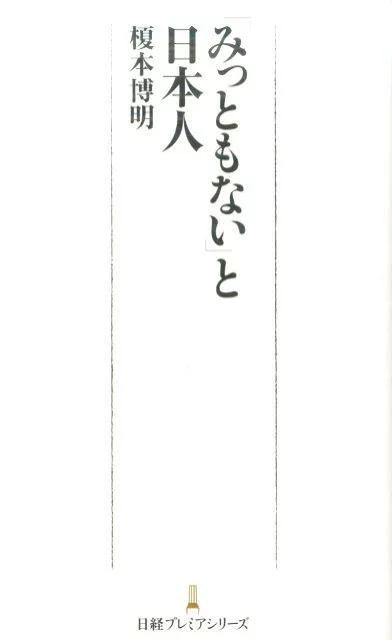 「みっともない」と
日本人
榎本博明
日経プレミアシリーズ